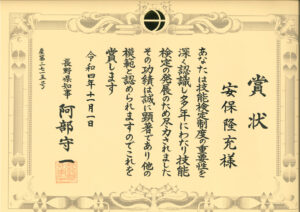 賞状
安保隆充様
あなたは技能検定制度の重要性を
深く認識し多年にわたり技能
検定の発展のため尽力されました
その功績は誠に顕著であり他の
模範と認められますのでこれを
賞します
令和四年十一月一日
長野県知事 阿部守一